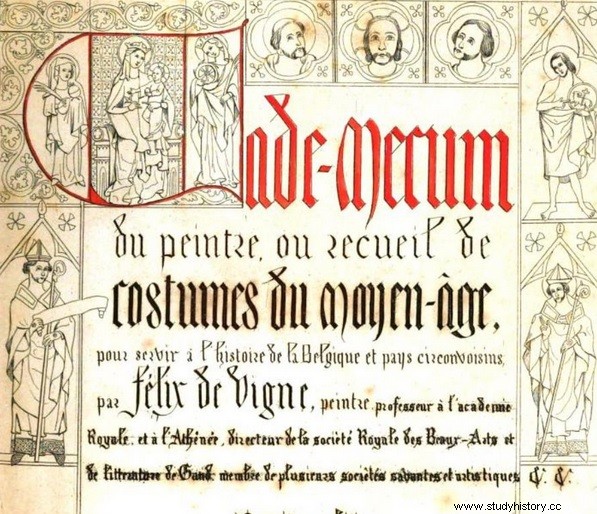 Vade-Mecum
du peintre, ou recueil de
costumes du moyen-âge,
pour servir à l'histoire de la Belgique et pays circonvoisins,
par Félix de Vigne, peintre, professeur à l'academie
Royale, et à l'Athénée, directeur de la société Royale des Beaux-Arts et
de littérature de Gand, membre de plusieurs sociétés savantes et artistiques
www.studyhistory.cc